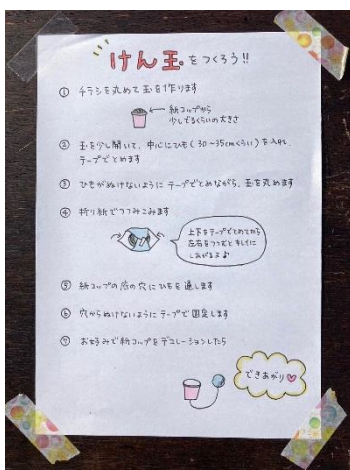 けん玉をつくろう!!
① チラシを丸めて玉を作ります
紙コップから
少しでるくらいの大きさ
② 玉を少し開いて、中心にひも(30〜35cmくらい)を入れ、
テープでとめます
③ ひもがぬけないようにテープでとめながら、玉を丸めます
④ 折り紙でつつみこみます
上下をテープでとめてから
左右をつつむとキレイに
しあがるよ♪
⑤ 紙コップの底の穴にひもを通します
⑥ 穴からぬけないようにテープで固定します
⑦ お好みで紙コップをデコレーションしたら
できあがり♡